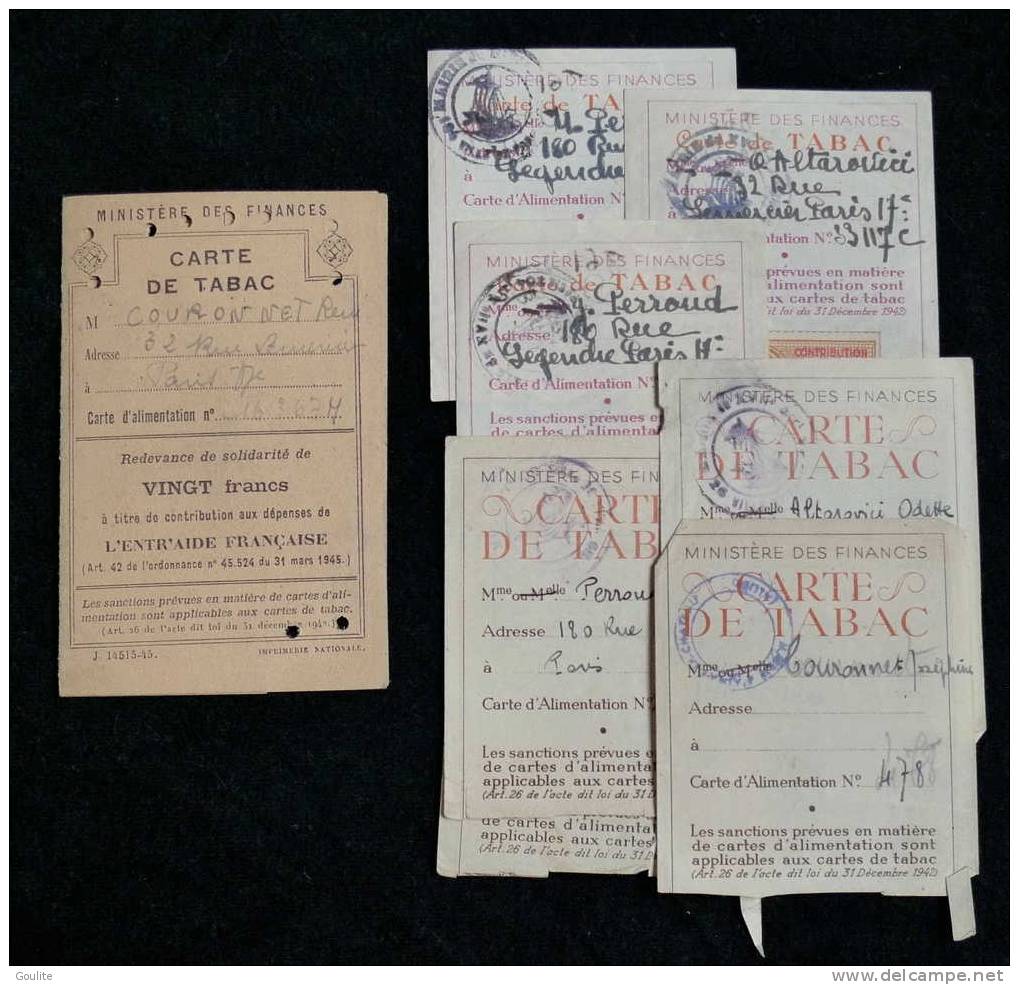 MINISTÈRE DES FINANCES
CARTE
DE TABAC
M COURONNET
Adresse 32 Rue
à Paris 17e
Carte d'alimentation nº
Redevance de solidarité de
VINGT francs
à titre de contribution aux dépenses de
L'ENTR'AIDE FRANÇAISE
(Art. 42 de l'ordonnance nº 45.524 du 31 mars 1945.)
Les sanctions prévues en matière de cartes d'ali-
mentation sont applicables aux cartes de tabac.
(Art. 26 de l'acte dit loi du 31 décembre 1942.)
J. 14515-45. IMPRIMERIE NATIONALE.
MINISTÈRE DES FINANCES
Carte de TA
180 Rue
Legendre
à
Carte d'Alimentation
MINISTÈRE DES FINANCES
Carte de TABAC
O Altarovici
Adresse 92 Rue
à Lemercier Paris 17e
mentation Nº 33117C
prévues en matière
alimentation sont
aux cartes de tabac
dit loi du 31 Décembre 1942)
CONTRIBUTION
MINISTÈRE DES FINANCES
Carte de TABAC
Perroud
Adresse 180 Rue
Legendre Paris
Carte d'Alimentation Nº
Les sanctions prévues
de cartes d'alimenta
MINISTÈRE DES FINANCES
CARTE
DE TABAC
Mme ou Melle Altarovici Odette
MINISTÈRE DES FI
CARTE
DE TAB
Mme ou Melle Perroud
Adresse 180 Rue
à Paris
Carte d'Alimentation Nº
Les sanctions prévues e
de cartes d'alimenta
applicables aux cartes
(Art. 26 de l'acte dit loi du 31 D
de cartes d'alimenta
applicables aux cartes
(Art. 26 de l'acte dit loi du 31 D
MINISTÈRE DES FINANCES
CARTE
DE TABAC
Mme ou Melle Couronnet Joséphine
Adresse
à
Carte d'Alimentation Nº 4788
Les sanctions prévues en matière
de cartes d'alimentation sont
applicables aux cartes de tabac
(Art. 26 de l'acte dit loi du 31 Décembre 1942)
Goulite
delcampe.net